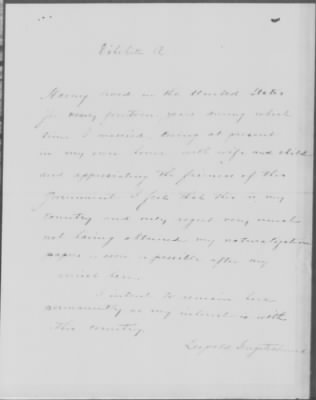 Exhibit A
Having lived in the United States
for over fourteen years during which
time I married, being at present
in my own home with wife and child
and appreciating the fairness of this
Government I feel that this is my
country and only regret very much
not having obtained my naturalization
papers as soon as possible after my
arrival here.
I intend to remain here
permanently as my interest is with
this country.
Leopold